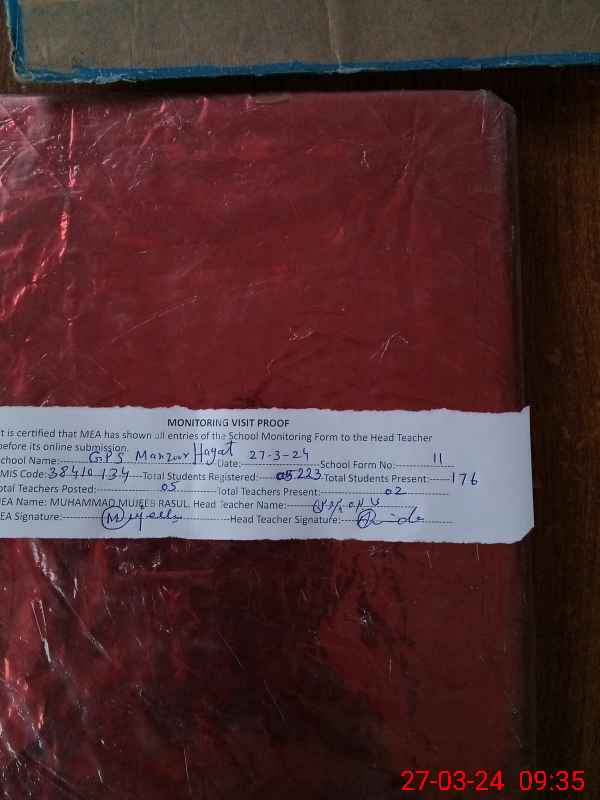 MONITORING VISIT PROOF
t is certified that MEA has shown all entries of the School Monitoring Form to the Head Teacher
before its online submission.
chool Name: GPS Manzoor Hayat Date: 27-3-24 School Form No: 11
MIS Code: 38410134 Total Students Registered: 223 Total Students Present: 176
otal Teachers Posted: 05 Total Teachers Present: 02
EA Name: MUHAMMAD MUJEEB RASUL. Head Teacher Name:
EA Signature: Head Teacher Signature:
27-03-24 09:35